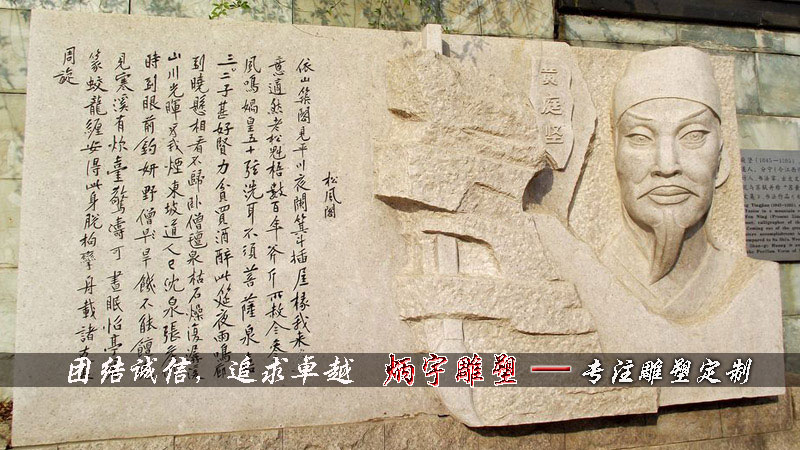 松風阁
依山築閣見平川夜闌箕斗插屋椽我来
意適然老松魁梧數百年斧斤所赦今参
風鳴媧皇五十弦洗耳不須菩薩泉
三二子甚好賢力貧買酒醉此筵夜雨鳴廊
到曉懸相看不歸卧僧氈泉枯石燥復潺湲
山川光暉为我煙東坡道人已沈泉張侯
時到眼前釣妍野僧旱饑不能饘
見寒溪有炊臺驚濤可晝眠怡亭
篆蛟龍纏安得此身脫拘攣舟載諸友
周旋
黄庭坚
团结诚信，追求卓越 炳宇雕塑 — 专注雕塑定制